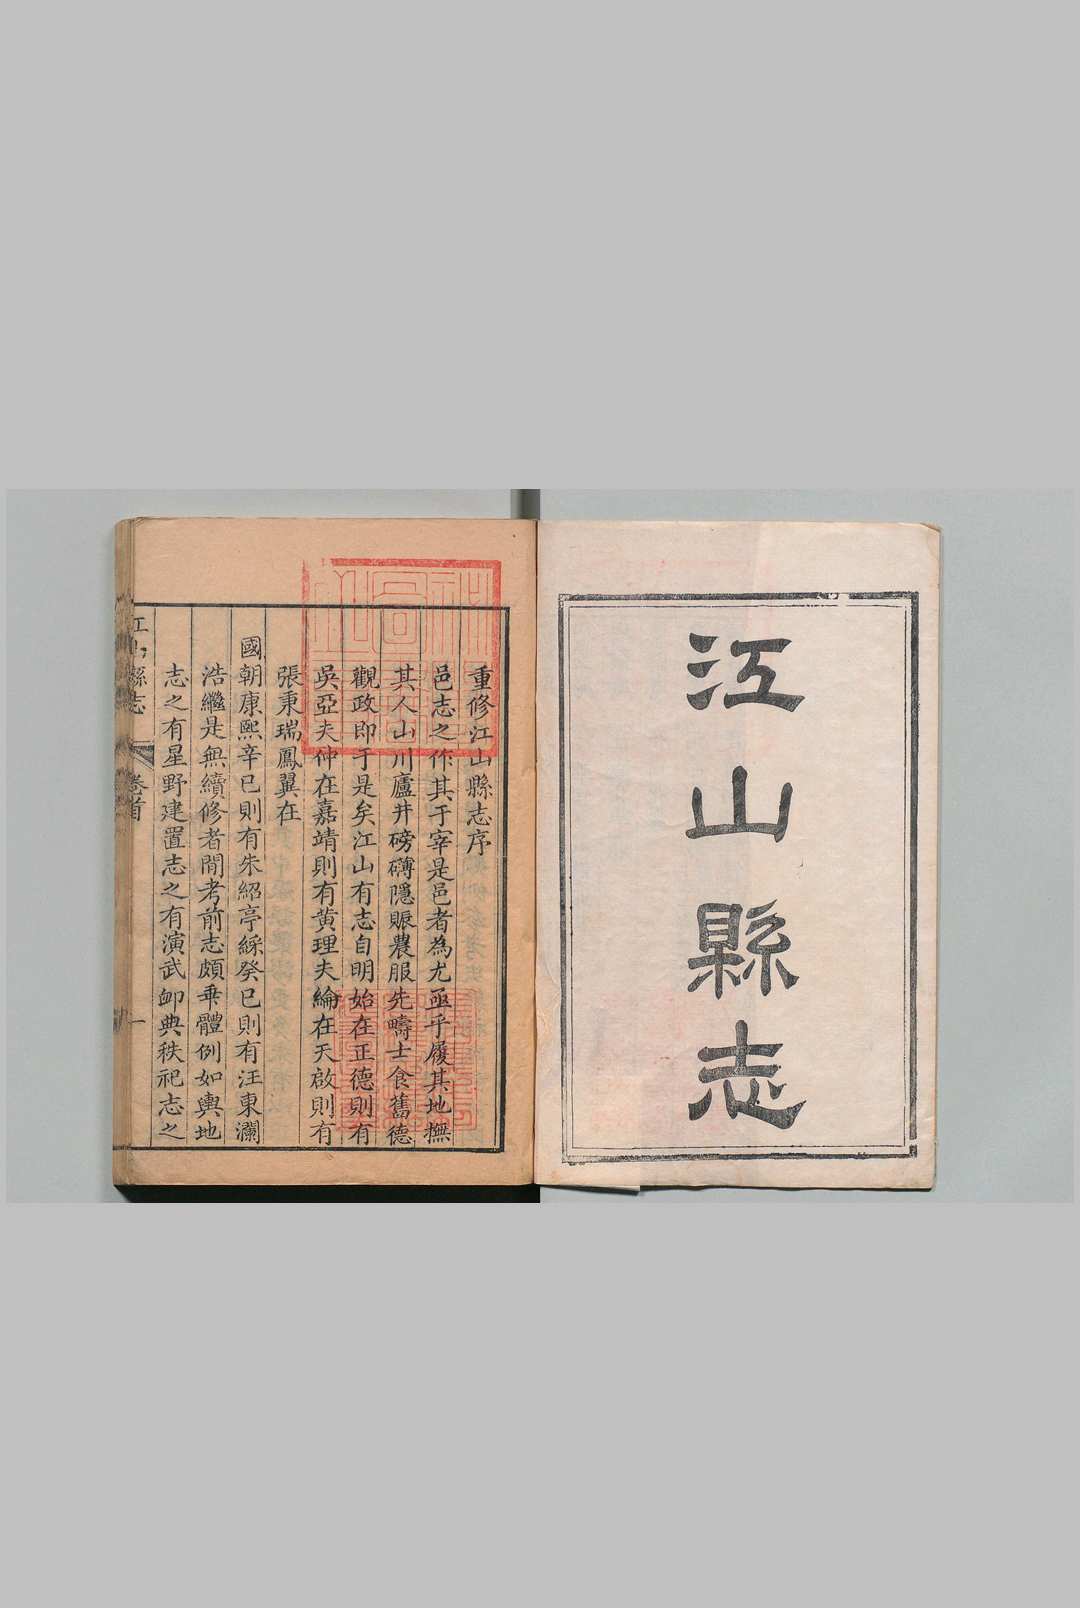 江山縣志
重修江山縣志序
邑志之作其于宰是邑者為尤亟乎履其地撫
其人山川廬井磅礴隱賑農服先疇士食舊德
觀政即于是矣江山有志自明始在正德則有
吳亞夫仲在嘉靖則有黄理夫綸在天啟則有
張秉瑞鳳翼在
國朝康熙辛巳則有朱紹亭綵癸巳則有汪東瀾
浩繼是無續修者閒考前志頗乖體例如輿地
志之有星野建置志之有演武卹典秩祀志之
江山縣志
卷首
一